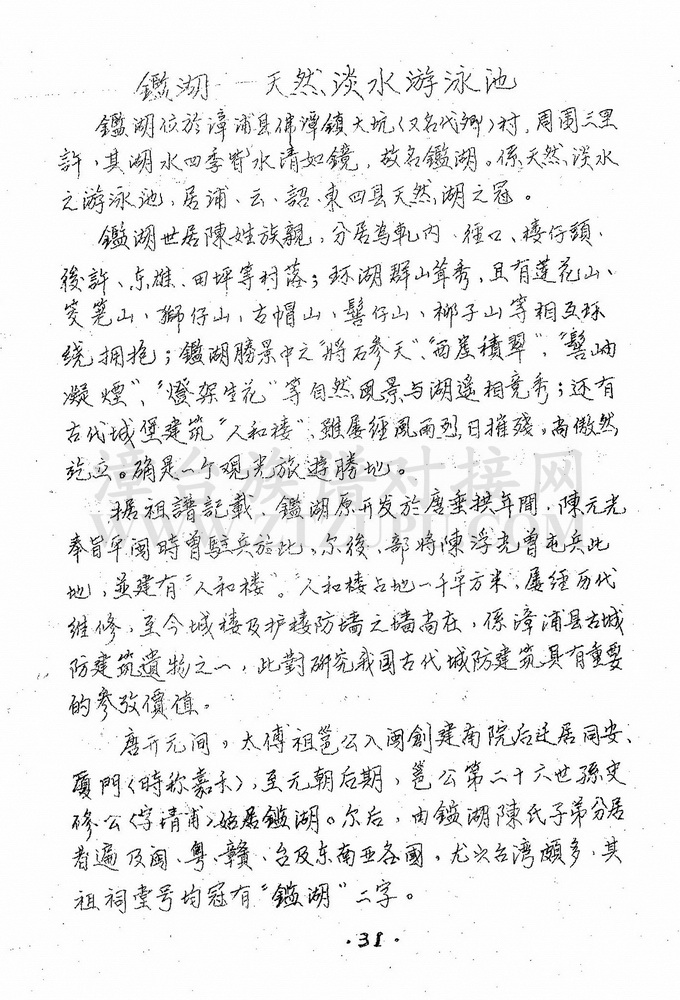 鑑湖——天然淡水游泳池
鑑湖位於漳浦县佛潭镇大坑(又名代卿)村，周围三里
許，其湖水四季皆水清如镜，故名鑑湖。係天然淡水
之游泳池，居浦、云、詔、東四县天然湖之冠。
鑑湖世居陳姓族親，分居為軋内、径口、楼仔頭、
後許、东雄、田坪等村落；环湖群山茸秀，且有莲花山、
笅笔山、獅仔山、古帽山、髻仔山、柳子山等相互环
绕拥抱；鑑湖勝景中之"將石参天"、"西崖積翠"、"髻岫
凝煙"、"燈架生花"等自然風景与湖遥相竞秀；还有
古代城堡建筑"人和楼"、雖屡經風雨烈日摧殘，尚傲然
竝立。确是一个观光旅遊勝地。
据祖譜記載、鑑湖原开发於唐垂拱年間，陳元光
奉旨平闽時曾駐兵於此，尔後，部將陳浮光曾屯兵此
地，並建有"人和楼"。人和楼占地一千平方米，屡經历代
维修，至今城楼及护楼防墙之墙尚在，係漳浦县古城
防建筑遺物之一，此對研究我国古代城防建筑具有重要
的参攷價值。
唐开元间，太傅祖邕公入闽創建南院后迁居同安、
厦門(時称嘉禾)，至元朝后期，邕公第二十六世孫史
修公(字靖甫)始居鑑湖。尔后，由鑑湖陳氏子弟分居
者遍及闽、粤、赣、台及东南亚各國，尤以台湾頗多，其
祖祠堂号均冠有"鑑湖"二字。
·31·
漳台族谱对接网
WWW.ZTZUPU.COM